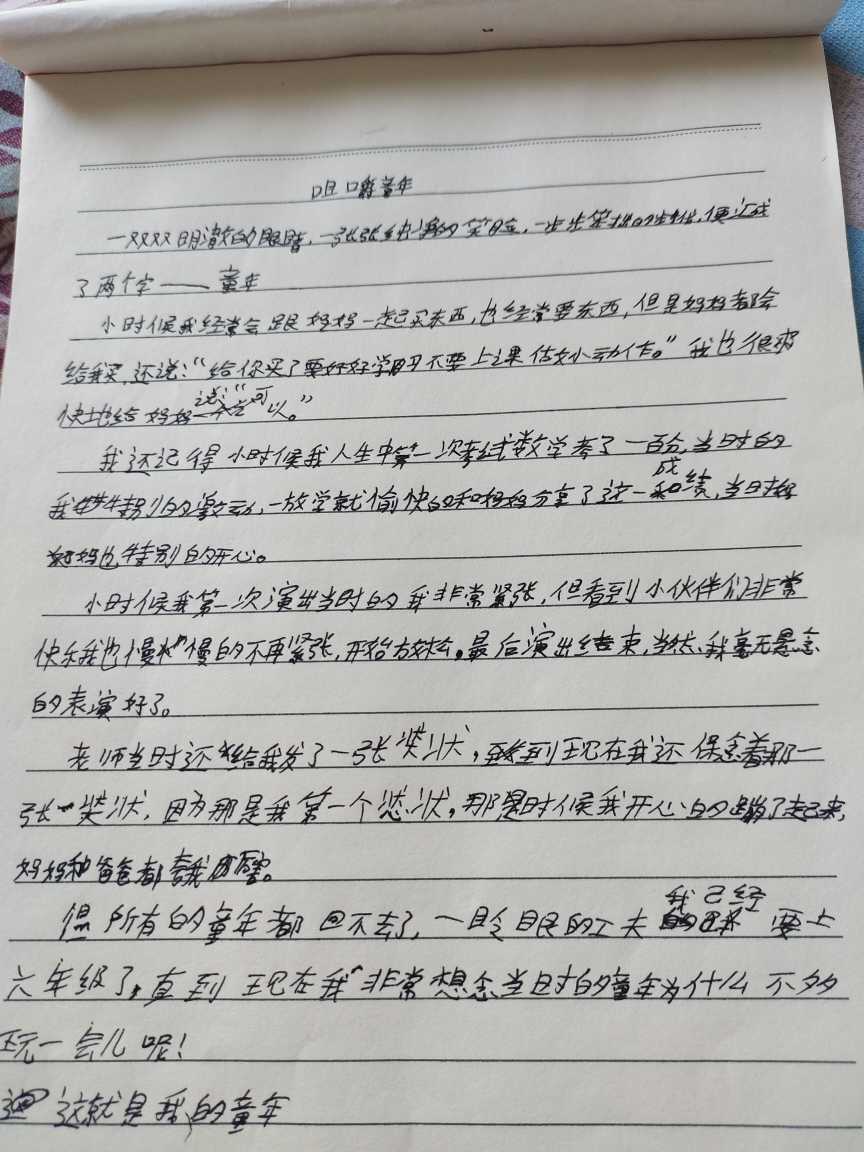 咀嚼童年
一双双明澈的眼睛，一张张纯真的笑脸，一步步笨拙的步伐，便汇成
了两个字——童年
小时候我经常会跟妈妈一起买东西，也经常要东西，但是妈妈都会
给我买，还说：“给你买了要好好学习不要上课估妙小动作。”我也很爽
快地给妈妈说：“可以。”
我还记得小时候我人生中第一次考试数学考了一百分，当时的
我特别的激动，一放学就愉快的和妈妈分享了这一成绩，当时妈
妈也特别的开心。
小时候我第一次演出当时的我非常紧张，但看到小伙伴们非常
快乐我也慢慢的不再紧张，开始放松。最后演出结束，当然、我毫无悬念
的表演好了。
老师当时还给我发了一张奖状，到现在我还保念着那一
张奖状，因为那是我第一个奖状，那是时候我开心的蹦了起来，
妈妈和爸爸都夸我厉害。
但所有的童年都回不去了，一眨眼的工夫我已经要上
六年级了，直到现在我非常想念当时的童年为什么不多
玩一会儿呢！
这就是我的童年